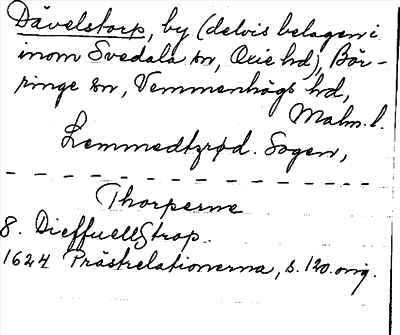 Dävelstorp, by (delvis belagen i
inom Svedala sn, Oxie hd), Bör-
ringe sn, Vemmenhögs hd,
Malm. l.
Lemmedtzrød. Sogen,
Thorperne
8. DieffuellStrop.
1624 Prästrelationerna, s. 120. orig.